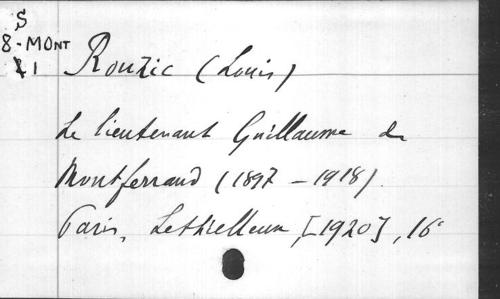 S
8-MONT
1
Rouzic (Louis)
Le lieutenant Guillaume de
Montferrand (1897-1918).
Paris, Lethielleux, [1920], 16°